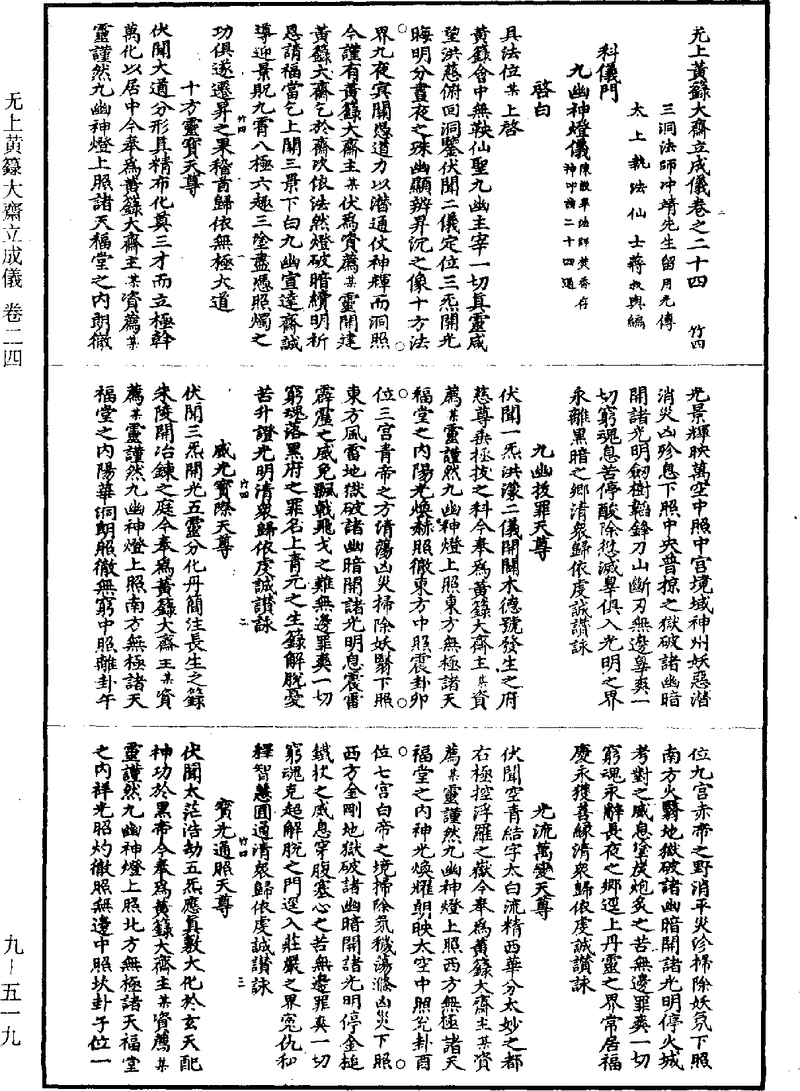 无上黃籙大齋立成儀 卷二四
九－五一九
无上黃籙大齋立成儀卷之二十四 竹四
三洞法師冲靖先生留用光傳
太上執法仙士蔣叔輿編
科儀門
九幽神燈儀
啓白
具法位某上啓
黃籙會中無鞅仙聖九幽主宰一切真靈咸
望洪慈俯回洞鑒伏聞二儀定位三炁開光
晦明分晝夜之殊幽顯辨昇沉之像十方法
界九夜冥關憑道力以潛通仗神輝而洞照
今謹有黃籙大齋主某伏爲資薦某靈開建
黃籙大齋乞於齋次依法然燈破暗續明祈
恩請福當乞上聞三景下白九幽宣達齋誠
導迎景貺九霄八極六趣三塗盡憑照燭之
功俱遂遷昇之果稽首歸依無極大道
竹四 一
十方靈寶天尊
伏聞大道分形具精布化奠三才而立極斡
萬化以居中今奉爲黃籙大齋主某資薦某
靈謹然九幽神燈上照諸天福堂之内朗徹
光景輝映萬空中照中宮境域神州妖惡潛
消災凶殄息下照中央普掠之獄破諸幽暗
開諸光明劒樹韜鋒刀山斷刃無邊辠爽一
切窮魂息苦停酸除愆滅辠俱入光明之界
永離黑暗之鄉清衆歸依虔誠讚詠
九幽拔罪天尊
伏聞一炁洪濛二儀開闢木德號發生之府
慈尊垂極拔之科今奉爲黃籙大齋主某資
薦某靈謹然九幽神燈上照東方無極諸天
福堂之内陽光煥赫照徹東方中照震卦卯
位三宮青帝之方清蕩凶災掃除妖翳下照
東方風雷地獄破諸幽暗開諸光明息震雷
霹靂之威免飄戟飛戈之難無邊罪爽一切
窮魂落黑府之罪名上青元之生籙解脫憂
苦升證光明清衆歸依虔誠讚詠
竹四 二
威光寶際天尊
伏聞三炁開光五靈分化丹簡注長生之籙
朱陵開冶鍊之庭今奉爲黃籙大齋主某資
薦某靈謹然九幽神燈上照南方無極諸天
福堂之内陽華洞朗照徹無窮中照離卦午
位九宮赤帝之野消平災沴掃除妖氛下照
南方火翳地獄破諸幽暗開諸光明停火城
考對之威息塗炭炮炙之苦無邊罪爽一切
窮魂永辭長夜之鄉逕上丹靈之界常居福
慶永獲善緣清衆歸依虔誠讚詠
光流萬變天尊
伏聞空青結字太白流精西華分太妙之都
右極控浮羅之嶽今奉爲黃籙大齋主某資
薦某靈謹然九幽神燈上照西方無極諸天
福堂之内神光煥耀朗映太空中照兌卦酉
位七宮白帝之境掃除氛穢蕩滌凶災下照
西方金剛地獄破諸幽暗開諸光明停金鎚
鐵杖之威息穿腹塞心之苦無邊罪爽一切
窮魂克超解脫之門逕入莊嚴之界寃仇和
釋智慧圓通清衆歸依虔誠讚詠
竹四 三
寶光通照天尊
伏聞太茫浩劫五炁應真數大化於玄天配
神功於黑帝今奉爲黃籙大齋主某資薦某
靈謹然九幽神燈上照北方無極諸天福堂
之内祥光昭灼徹照無邊中照坎卦子位一